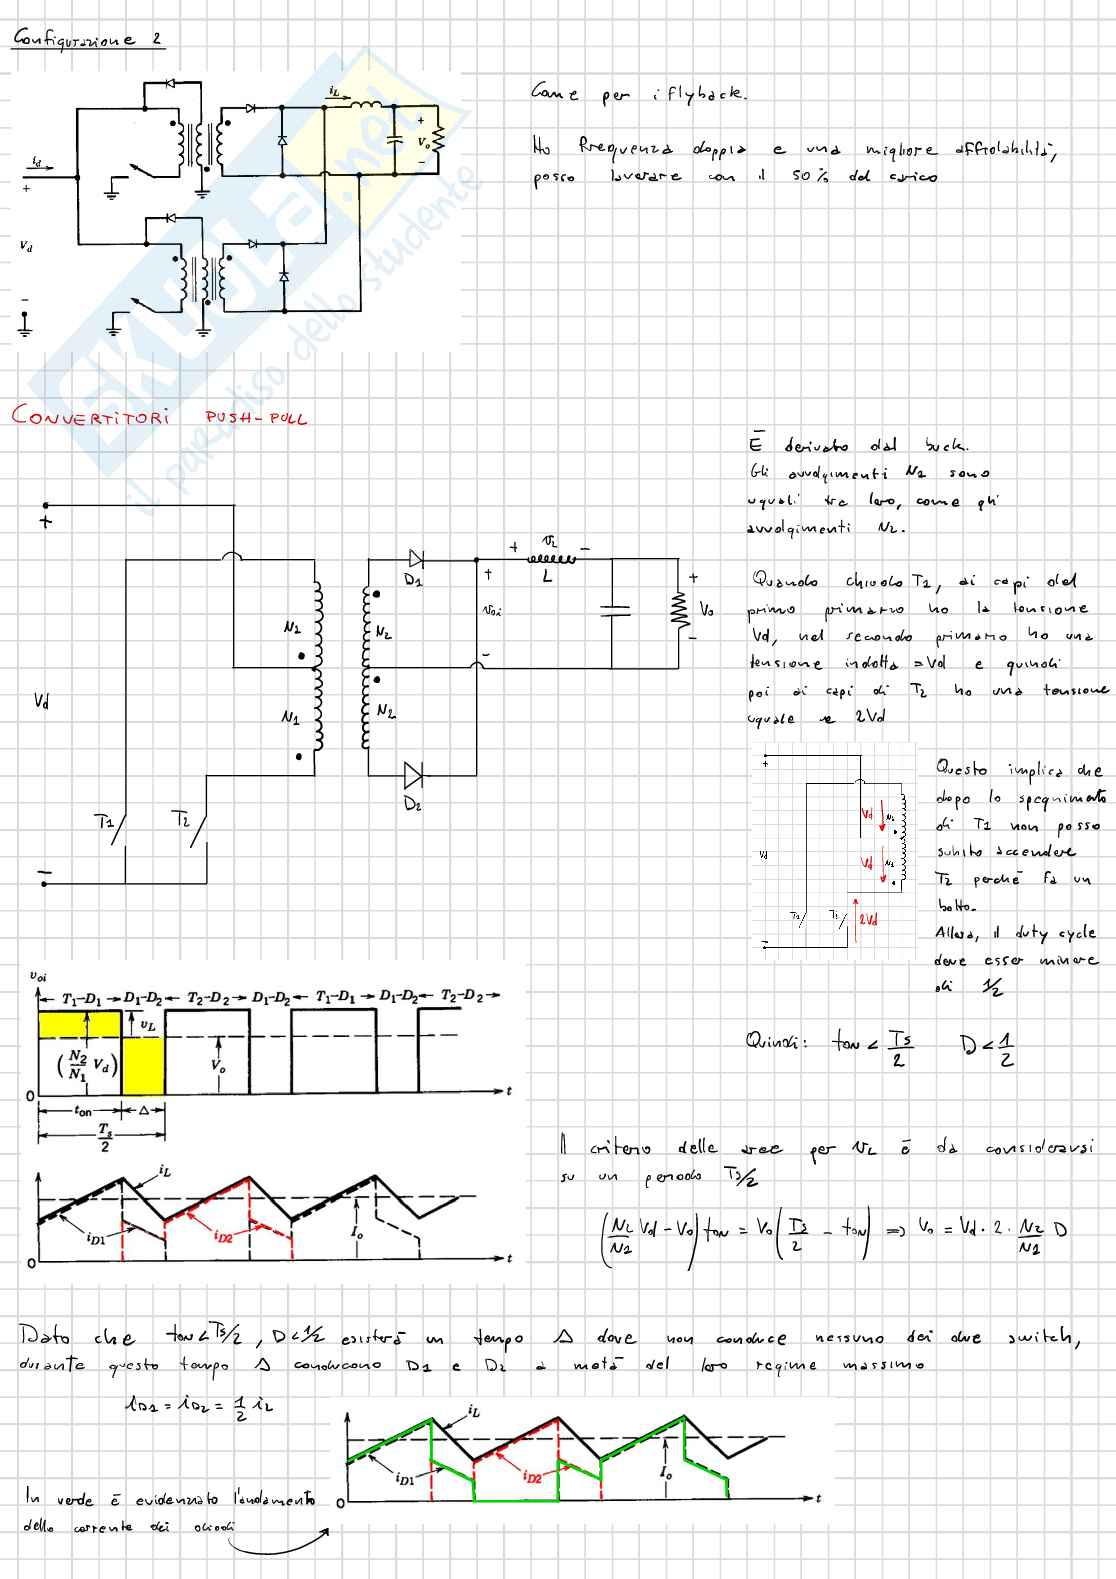 Configurazione 2
Come per i flyback.
Ho frequenza doppia e una migliore affidabilità,
posso lavorare con il 50% del carico
i_L
i_d
+
V_o
−
+
V_d
−
SKUOLA.net
il paradiso dello studente
CONVERTITORI PUSH-PULL
È derivato dal buck.
Gli avvolgimenti N2 sono
uguali tra loro, come gli
avvolgimenti N2.
Quando chiudo T1, ai capi del
primo primario ho la tensione
Vd, nel secondo primario ho una
tensione indotta =Vd e quindi
poi ai capi di T2 ho una tensione
uguale a 2Vd
+
D1
+ v_L −
L
+
v_oi
−
+
Vo
−
N1
N2
Vd
N1
N2
D2
T1
T2
−
+
Vd
N1
Vd
Vd
N1
T1
T2
2Vd
−
Questo implica che
dopo lo spegnimento
di T1 non posso
subito accendere
T2 perché fa un
botto.
Allora, il duty cycle
deve esser minore
di 1/2
v_oi
T1-D1 D1-D2 T2-D2 D1-D2 T1-D1 D1-D2 T2-D2
v_L
(N2/N1 V_d)
V_o
0
t
t_on
Δ
T_s/2
Quindi: ton < Ts/2 D < 1/2
Il criterio delle aree per v_L è da considerarsi
su un periodo Ts/2
(N2/N1 Vd − Vo) ton = Vo (Ts/2 − ton) => Vo = Vd · 2 · N2/N1 D
i_L
i_D1
i_D2
I_o
0
t
Dato che ton < Ts/2, D < 1/2 esisterà un tempo Δ dove non conduce nessuno dei due switch,
durante questo tempo Δ conducono D1 e D2 a metà del loro regime massimo
i_D1 = i_D2 = 1/2 i_L
In verde è evidenziato l'andamento
della corrente dei diodi
i_L
i_D1
i_D2
I_o
0
t